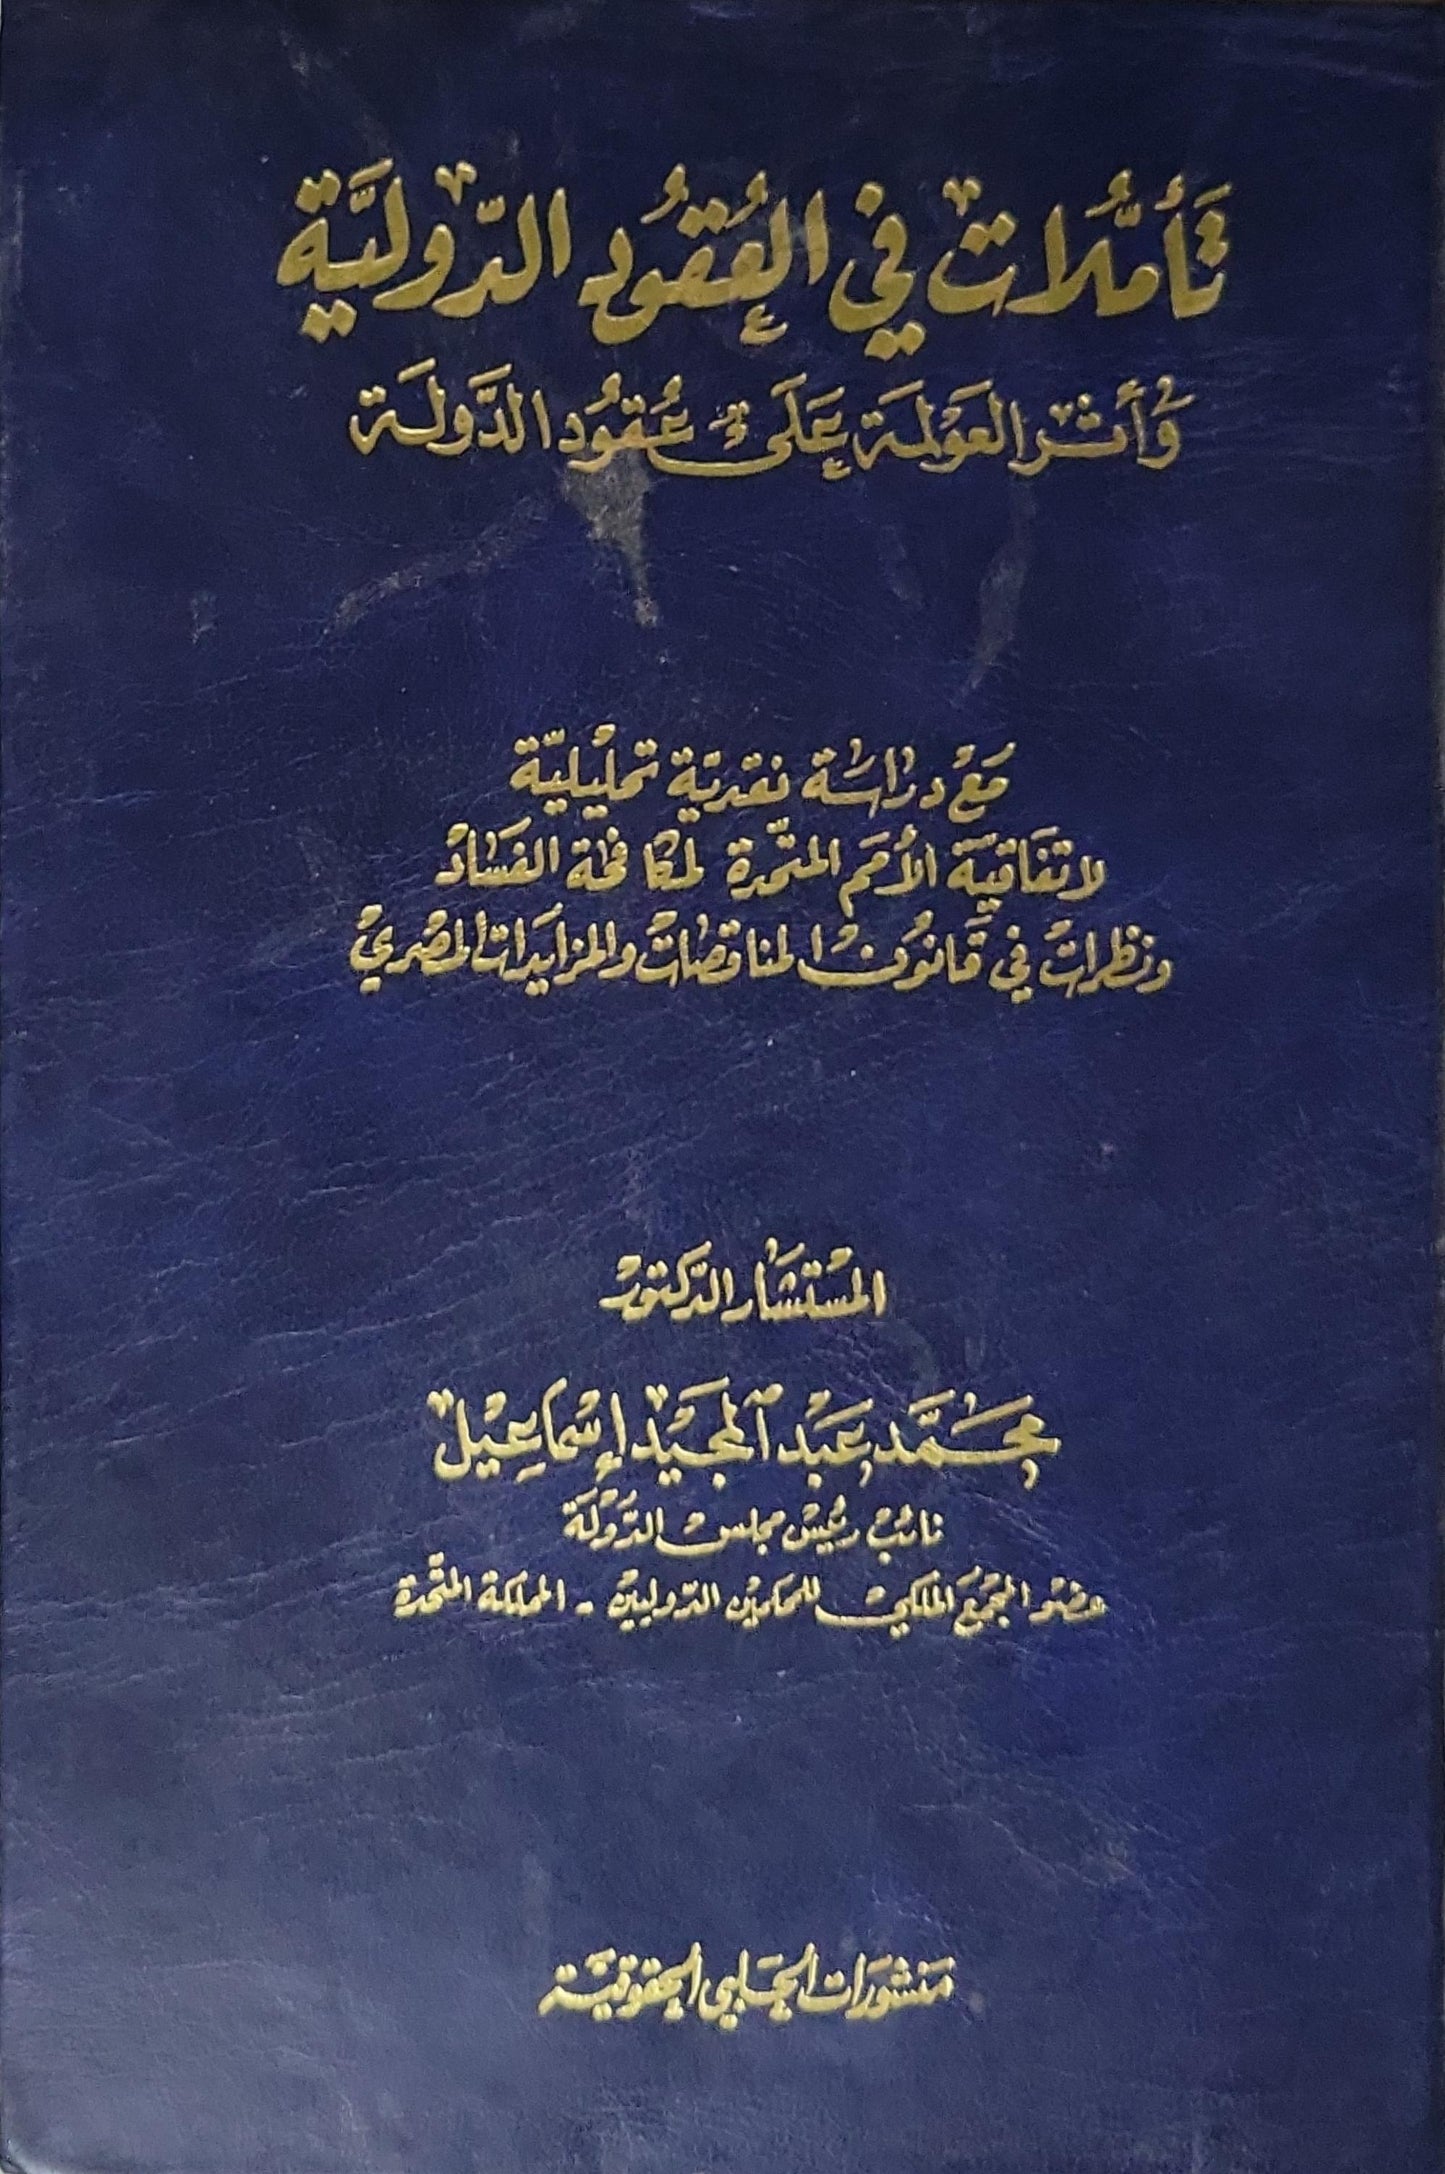 تَأَمُّلات في العُقُود الدّوليَّة
وَأثر العَولمَة عَلى عُقُود الدَّولَة
مَعْ دراسَة نقديّة تحليْليّة
لاتفَاقيّة الأمَم المتّحدة لمكافحة الفسَادْ
ونظراتْ في قانوُن المناقصَاتْ والمزايَدات المصْري
المسْتشَار الدّكتورْ
محَمَّد عَبْد المجيْد إسْمَاعِيْل
نائبْ رئيسْ مجلسْ الدَّوْلَة
عضو المجمَع الملكي للمحكمين الدّولييْن - المملكة المتّحدة
مَنشورَات الحَلبي الحقوقيَّة